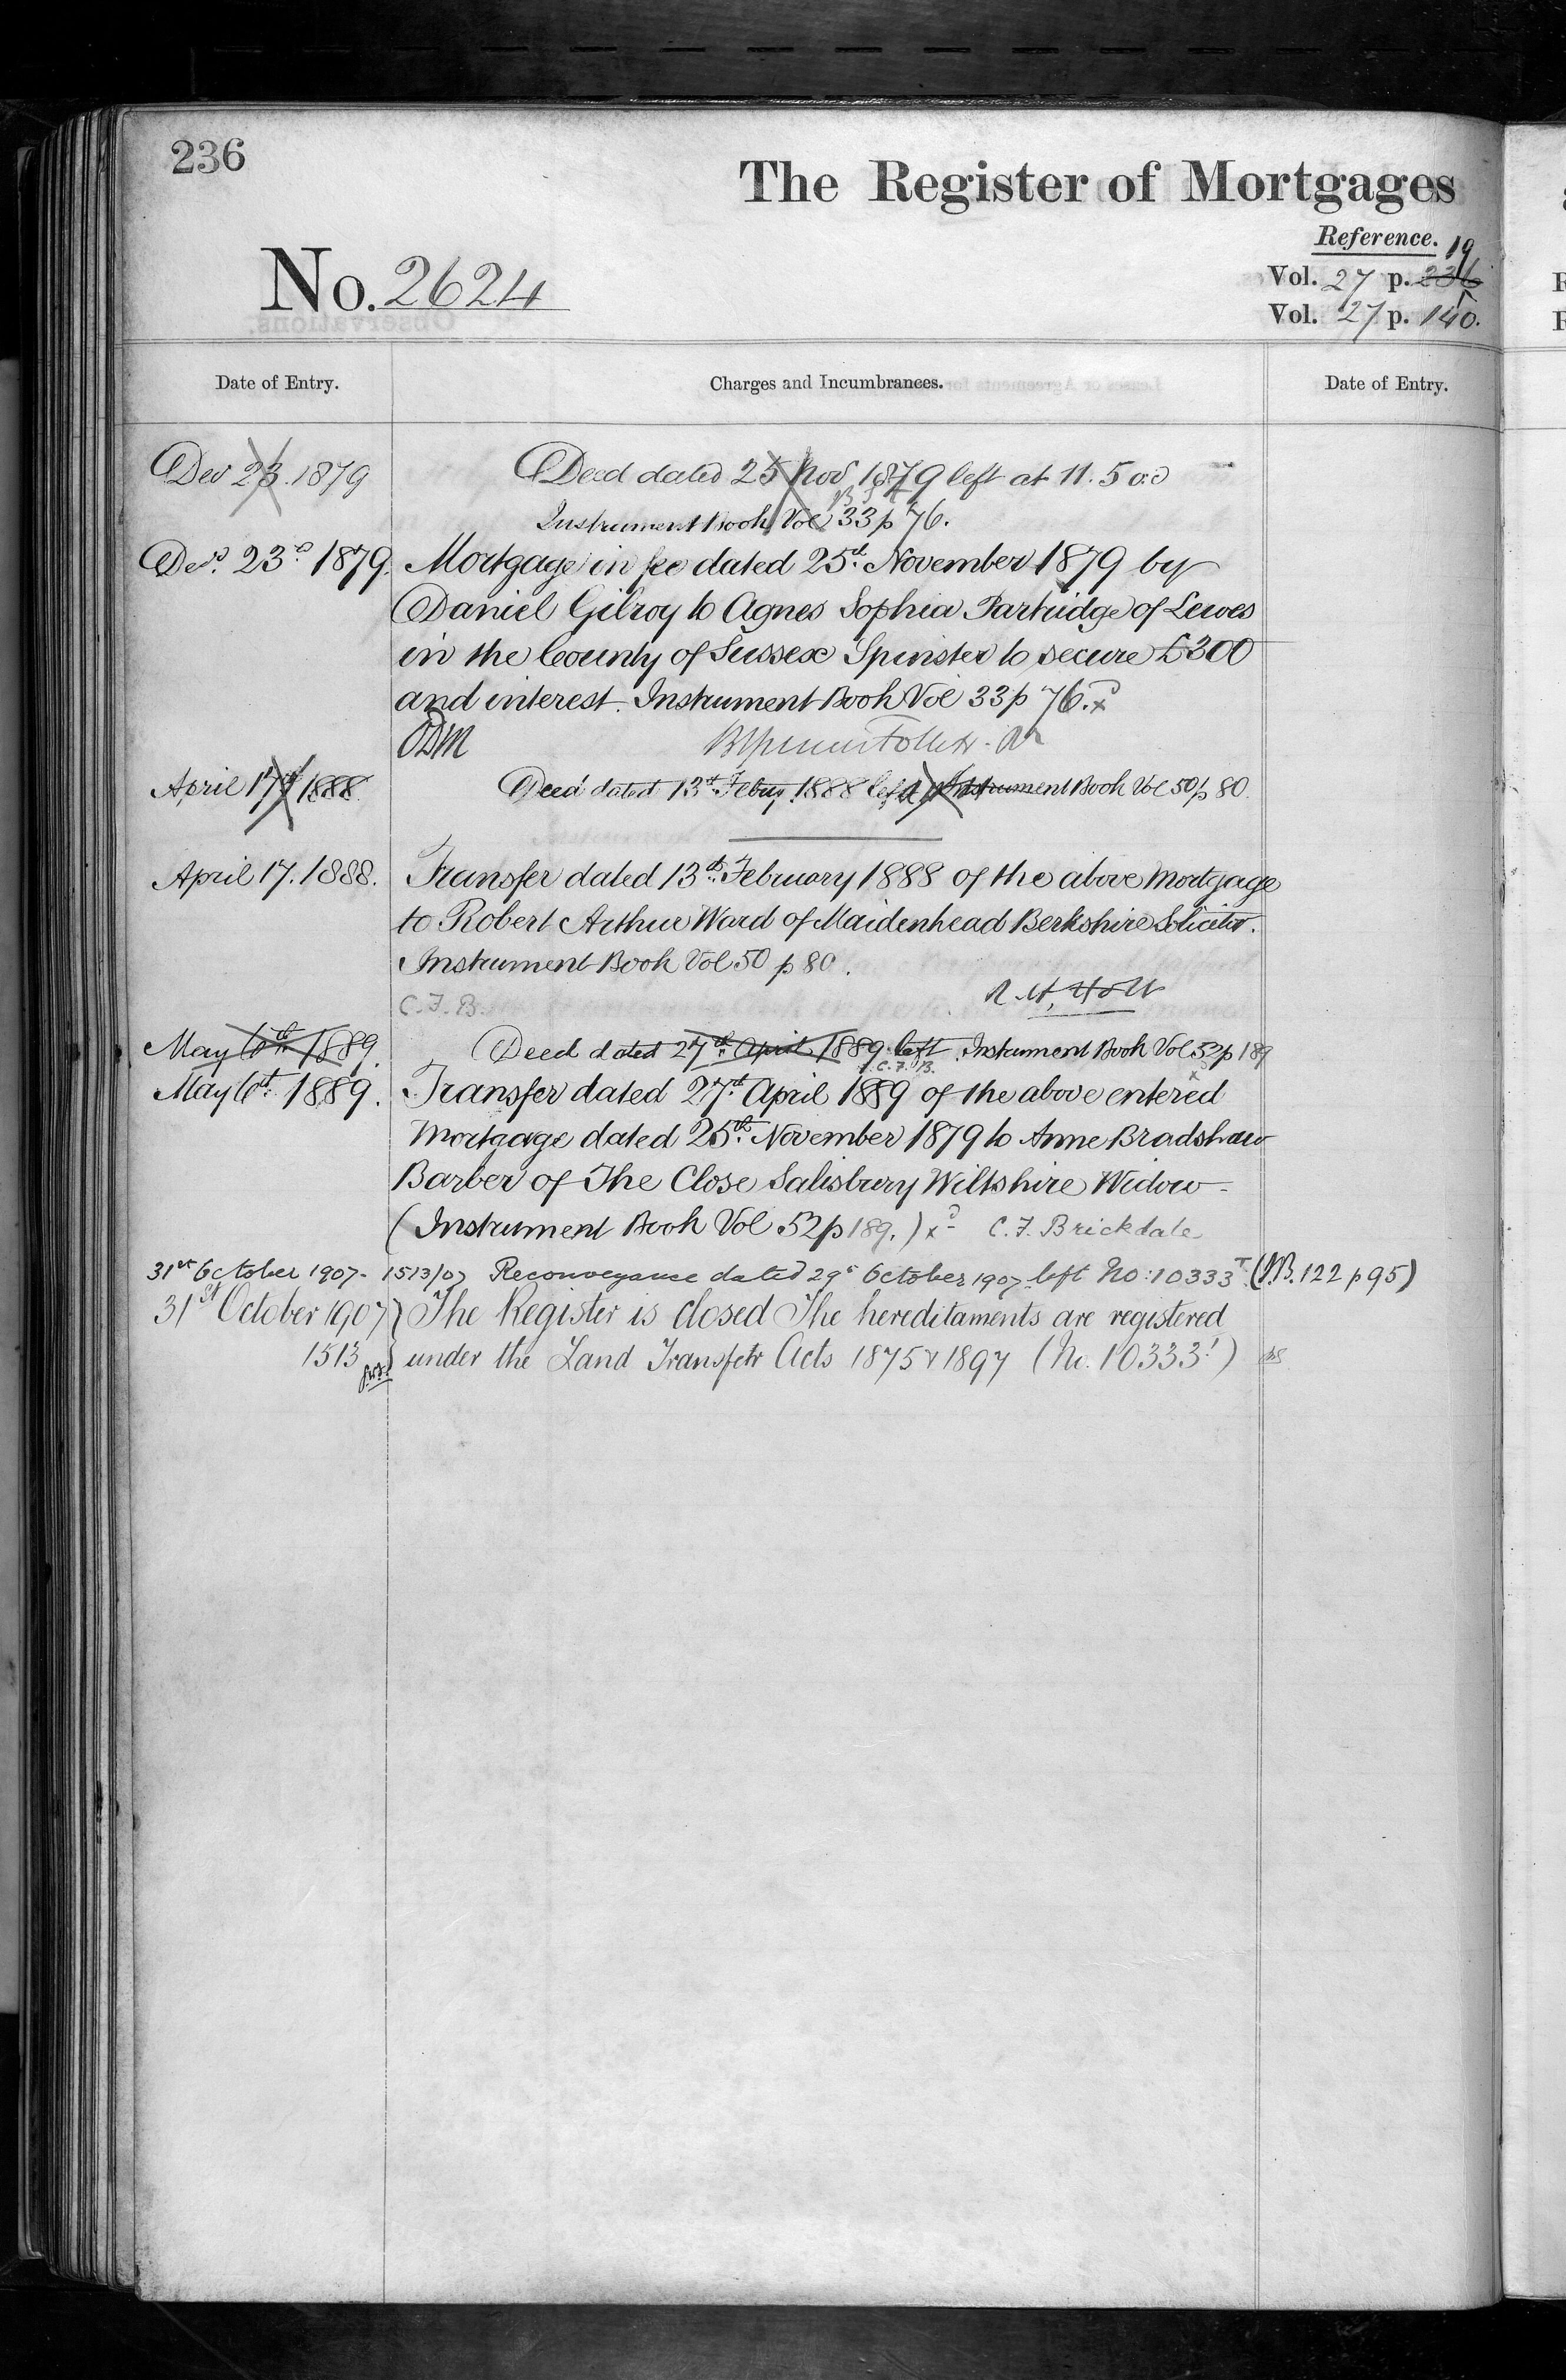 236
The Register of Mortgages
Reference.
19
No. 2624
Vol. 27 p. 236
Vol. 27 p. 140.
Date of Entry. Charges and Incumbrances. Date of Entry.
Dec 23. 1879 Deed dated 25 Nov 1879 left at 11.5 o.c
Instrument Book Vol 33 p 76.
Dec. 23d 1879. Mortgage in fee dated 25th November 1879 by
Daniel Gilroy to Agnes Sophia Partridge of Lewes
in the County of Sussex Spinster to secure £300
and interest. Instrument Book Vol 33 p 76.
ODM
April 17th 1888. Deed dated 13th Febuy. 1888 left Instrument Book Vol 50 p 80.
April 17. 1888. Transfer dated 13th February 1888 of the above Mortgage
to Robert Arthur Ward of Maidenhead Berkshire Solicitor.
Instrument Book Vol 50 p 80.
C.F.B. R. H. Holt
May 6th 1889. Deed dated 27th April 1889 left. Instrument Book Vol 52 p 189
C.F.B.
May 6th 1889. Transfer dated 27th April 1889 of the above entered
Mortgage dated 25th November 1879 to Anne Bradshaw
Barber of The Close Salisbury Wiltshire Widow -
(Instrument Book Vol 52 p 189.) C.F. Brickdale
31st October 1907 - 1513/07 Reconveyance dated 29th October 1907 left No: 10333T (I.B. 122 p 95)
31st October 1907 } The Register is closed The hereditaments are registered
1513 } under the Land Transfer Acts 1875 & 1897 (No. 10333T)